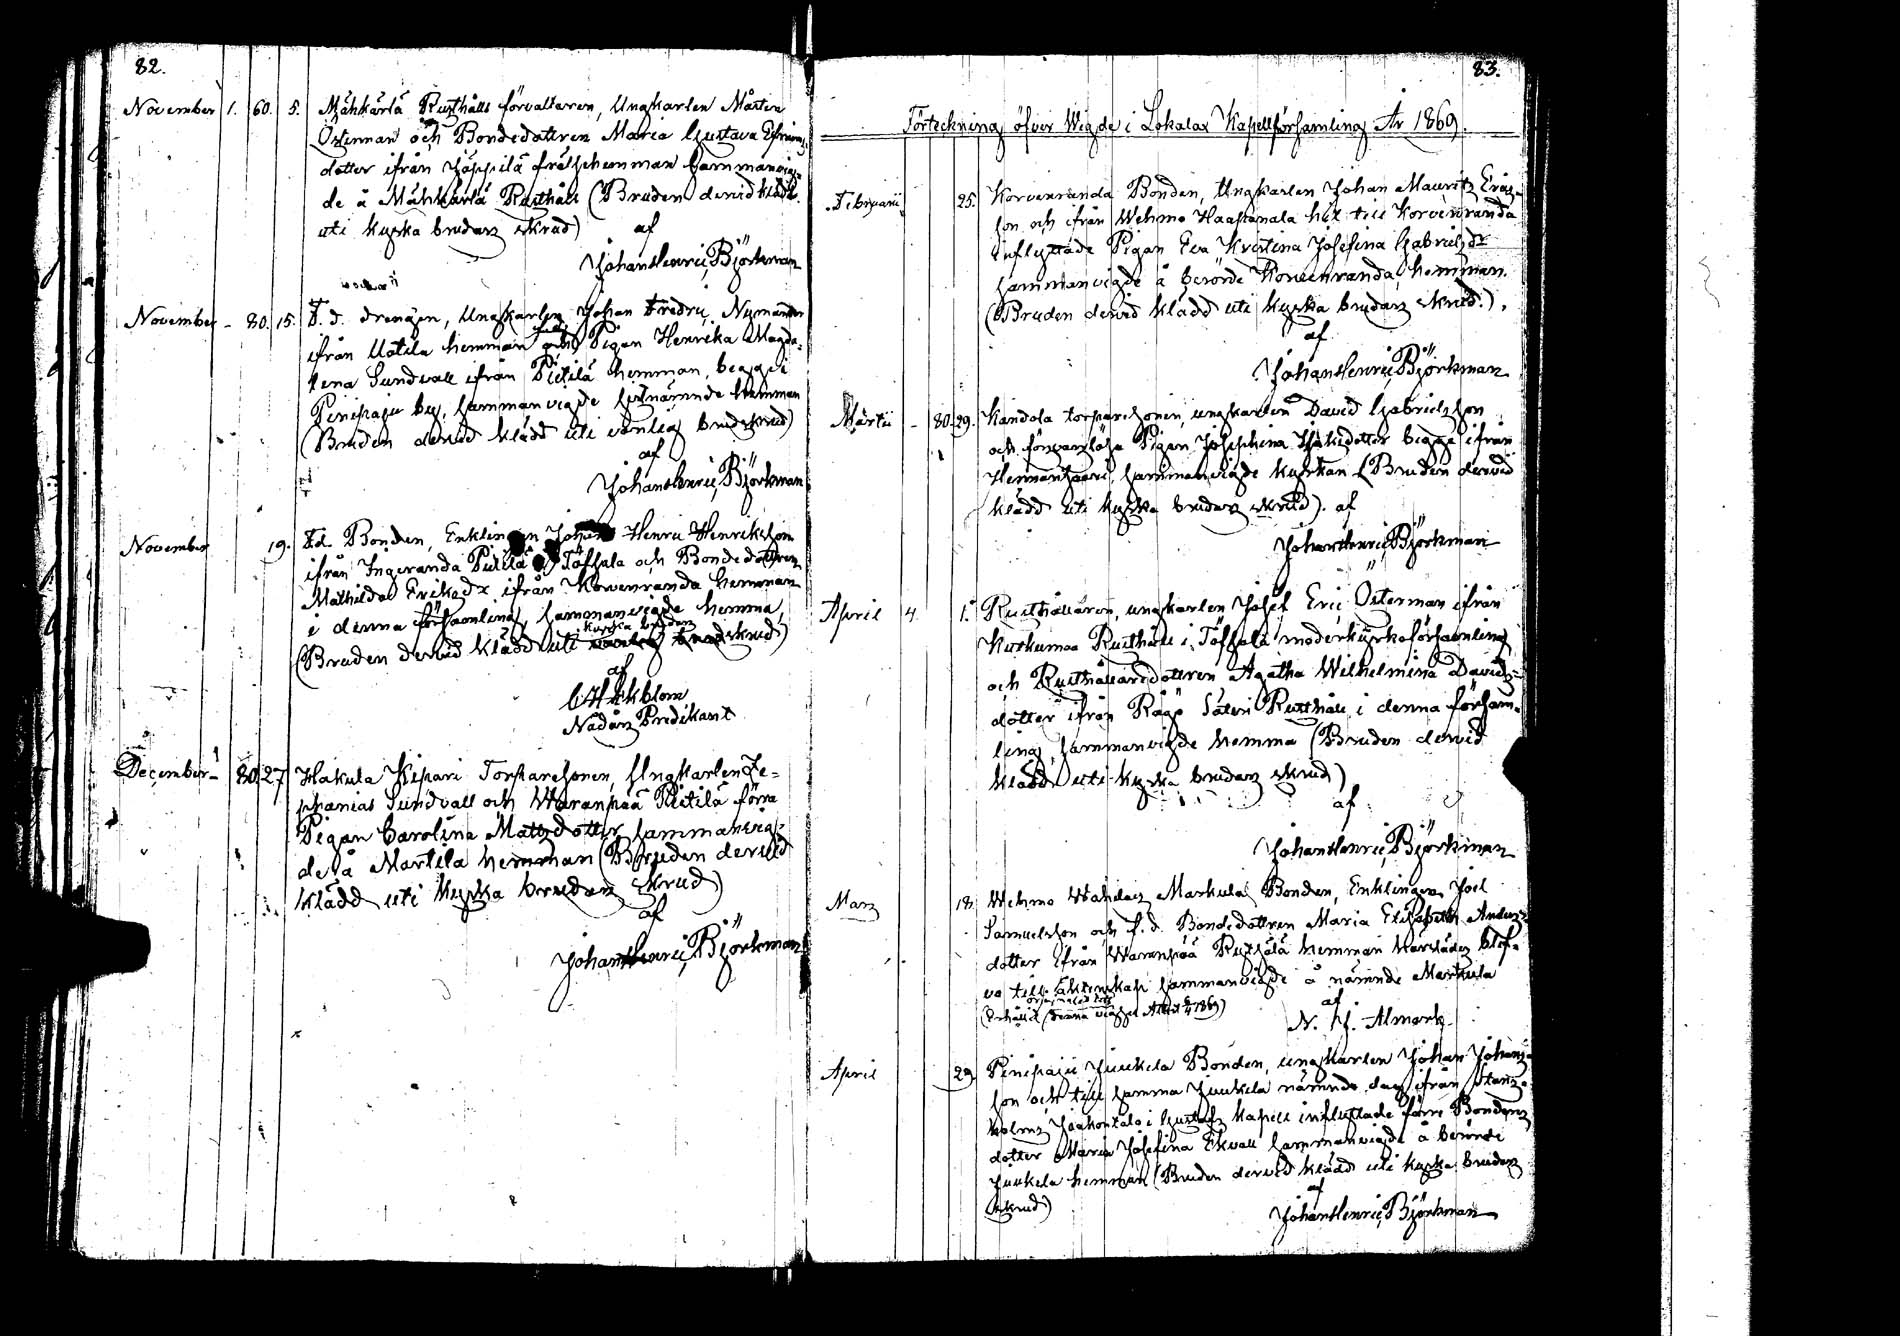 82.
November 1. 60. 5. Mähkärlä Rusthålls förvaltaren, Ungkarlen Mårten
Österman och Bondedottren Maria Gustava Efraims
dotter ifrån Jäppilä frälsehemman sammanvig-
de å Mähkärlä Rusthåll (Bruden dervid klädd
uti kyrka brudars skrud) af
Johan Henric Björkman
November - 80. 15. F. d. drengen, Ungkarlen Johan Fredric Nymander
ifrån Uotila hemman och Pigan Henrika Magda-
lena Sundvall ifrån Pietilä hemman, begge i
Pinipaju by, sammanvigde hemman
(Bruden dervid klädd uti vanlig brudskrud)
af
Johan Henric Björkman
November 19. F.d. Bonden, Enklingen Johan Henric Henriksson
ifrån Ingeranda Pietilä i Töfsala och Bondedottren
Mathilda Eriksdr ifrån Korvenranda hemman
i denna församling, sammanvigde hemma,
kyrka brudars
(Bruden dervid klädd uti vanlig brudskrud)
af
Nådårs Predikant
December - 80. 27 Hakula Kepari Torparesonen, Ungkarlen Ze-
phanias Sundvall och Waranpää Pietilä förra
Pigan Carolina Mattsdotter sammanvig-
de å Martila hemman (Bruden dervid
klädd uti kyrka brudars skrud)
af
Johan Henric Björkman
83.
Förteckning öfver Wigde i Lokalax Kapellförsamling År 1869.
Februarii 25. Korvenranda Bonden, Ungkarlen Johan Mauritz Erics-
son och ifrån Wehmo Haapanala hit till Korvenranda
inflyttade Pigan Eva Kristina Josefina Gabrielsdr
sammanvigde å berörde Korvenranda hemman.
(Bruden dervid klädd uti kyrka brudars skrud.).
af
Johan Henric Björkman
Martii - 80. 29. Kandola torparesonen, ungkarlen David Gabrielsson
och försvarslösa Pigan Josephina Isaksdotter begge ifrån
Hermansaari, sammanvigde kyrkan (Bruden dervid
klädd uti kyrka brudars skrud). af
Johan Henric Björkman
April 4 1. Rusthållaren, ungkarlen Josef Eric Österman ifrån
Kuskumaa Rusthåll i Töfsala moderkyrkoförsamling
och Rusthållaredottren Agatha Wilhelmina Davids-
dotter ifrån Rågö Säteri Rusthåll i denna försam-
ling, sammanvigde hemma (Bruden dervid
klädd uti kyrka brudars skrud)
af
Johan Henric Björkman
Mars 18. Wehmo Wahdes Markula Bonden, Enklingen Joel
Samuelsson och f.d. Bondedottren Maria Elisabeth Anders-
dotter ifrån Waranpää hemman härstädes blef-
vo till Äktenskap sammanvigde å nämnde Markula
(Erhållit denna vigsel Attest 4/4 1869) af
N. J. Almark
April 29. Pinipaju Juukela Bonden, ungkarlen Johan Johans-
son och till samma Juukela nämnde dag ifrån
holms Jaakontalo i Gustafs kapell inflyttade förre Bondens
dotter Maria Josefina Ekvall sammanvigde å berörde
Juukela hemman (Bruden dervid klädd uti kyrka brudars
skrud) af
Johan Henric Björkman